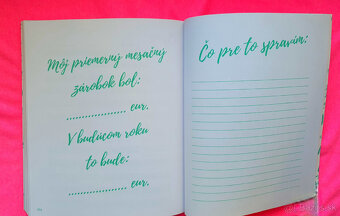 Môj priemerný mesačný
zárobok bol:
................... eur.
V budúcom roku
to bude:
................... eur.
Čo pre to spravím: